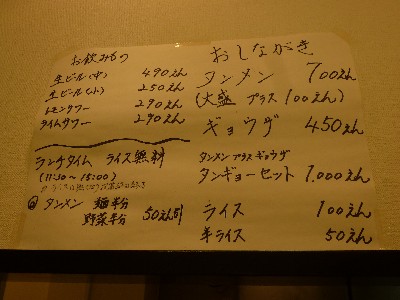 お飲みもの
生ビール(中) 490えん
生ビール(小) 250えん
レモンサワー 290えん
ライムサワー 290えん
ランチタイム ライス無料
(11:30~15:00)
タンメン 麺半分
野菜半分 50えん引
おしながき
タンメン 700えん
(大盛 プラス 100えん)
ギョウザ 450えん
タンメン プラス ギョウザ
タンギョーセット 1,000えん
ライス 100えん
半ライス 50えん